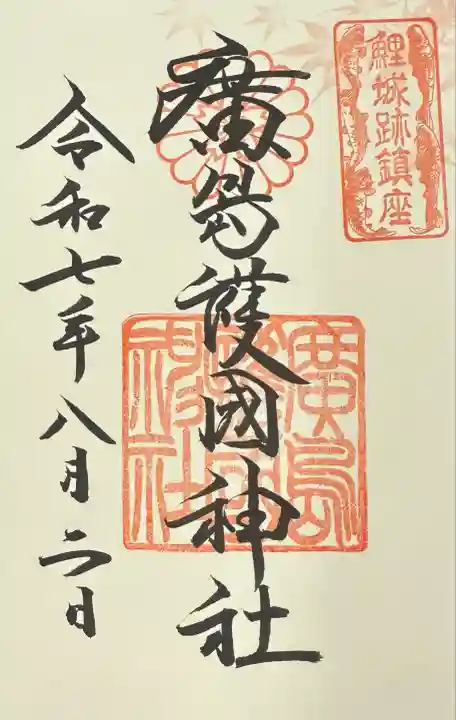 鯉城跡鎮座
廣島護國神社
令和七年八月二日
廣島
護國
神社